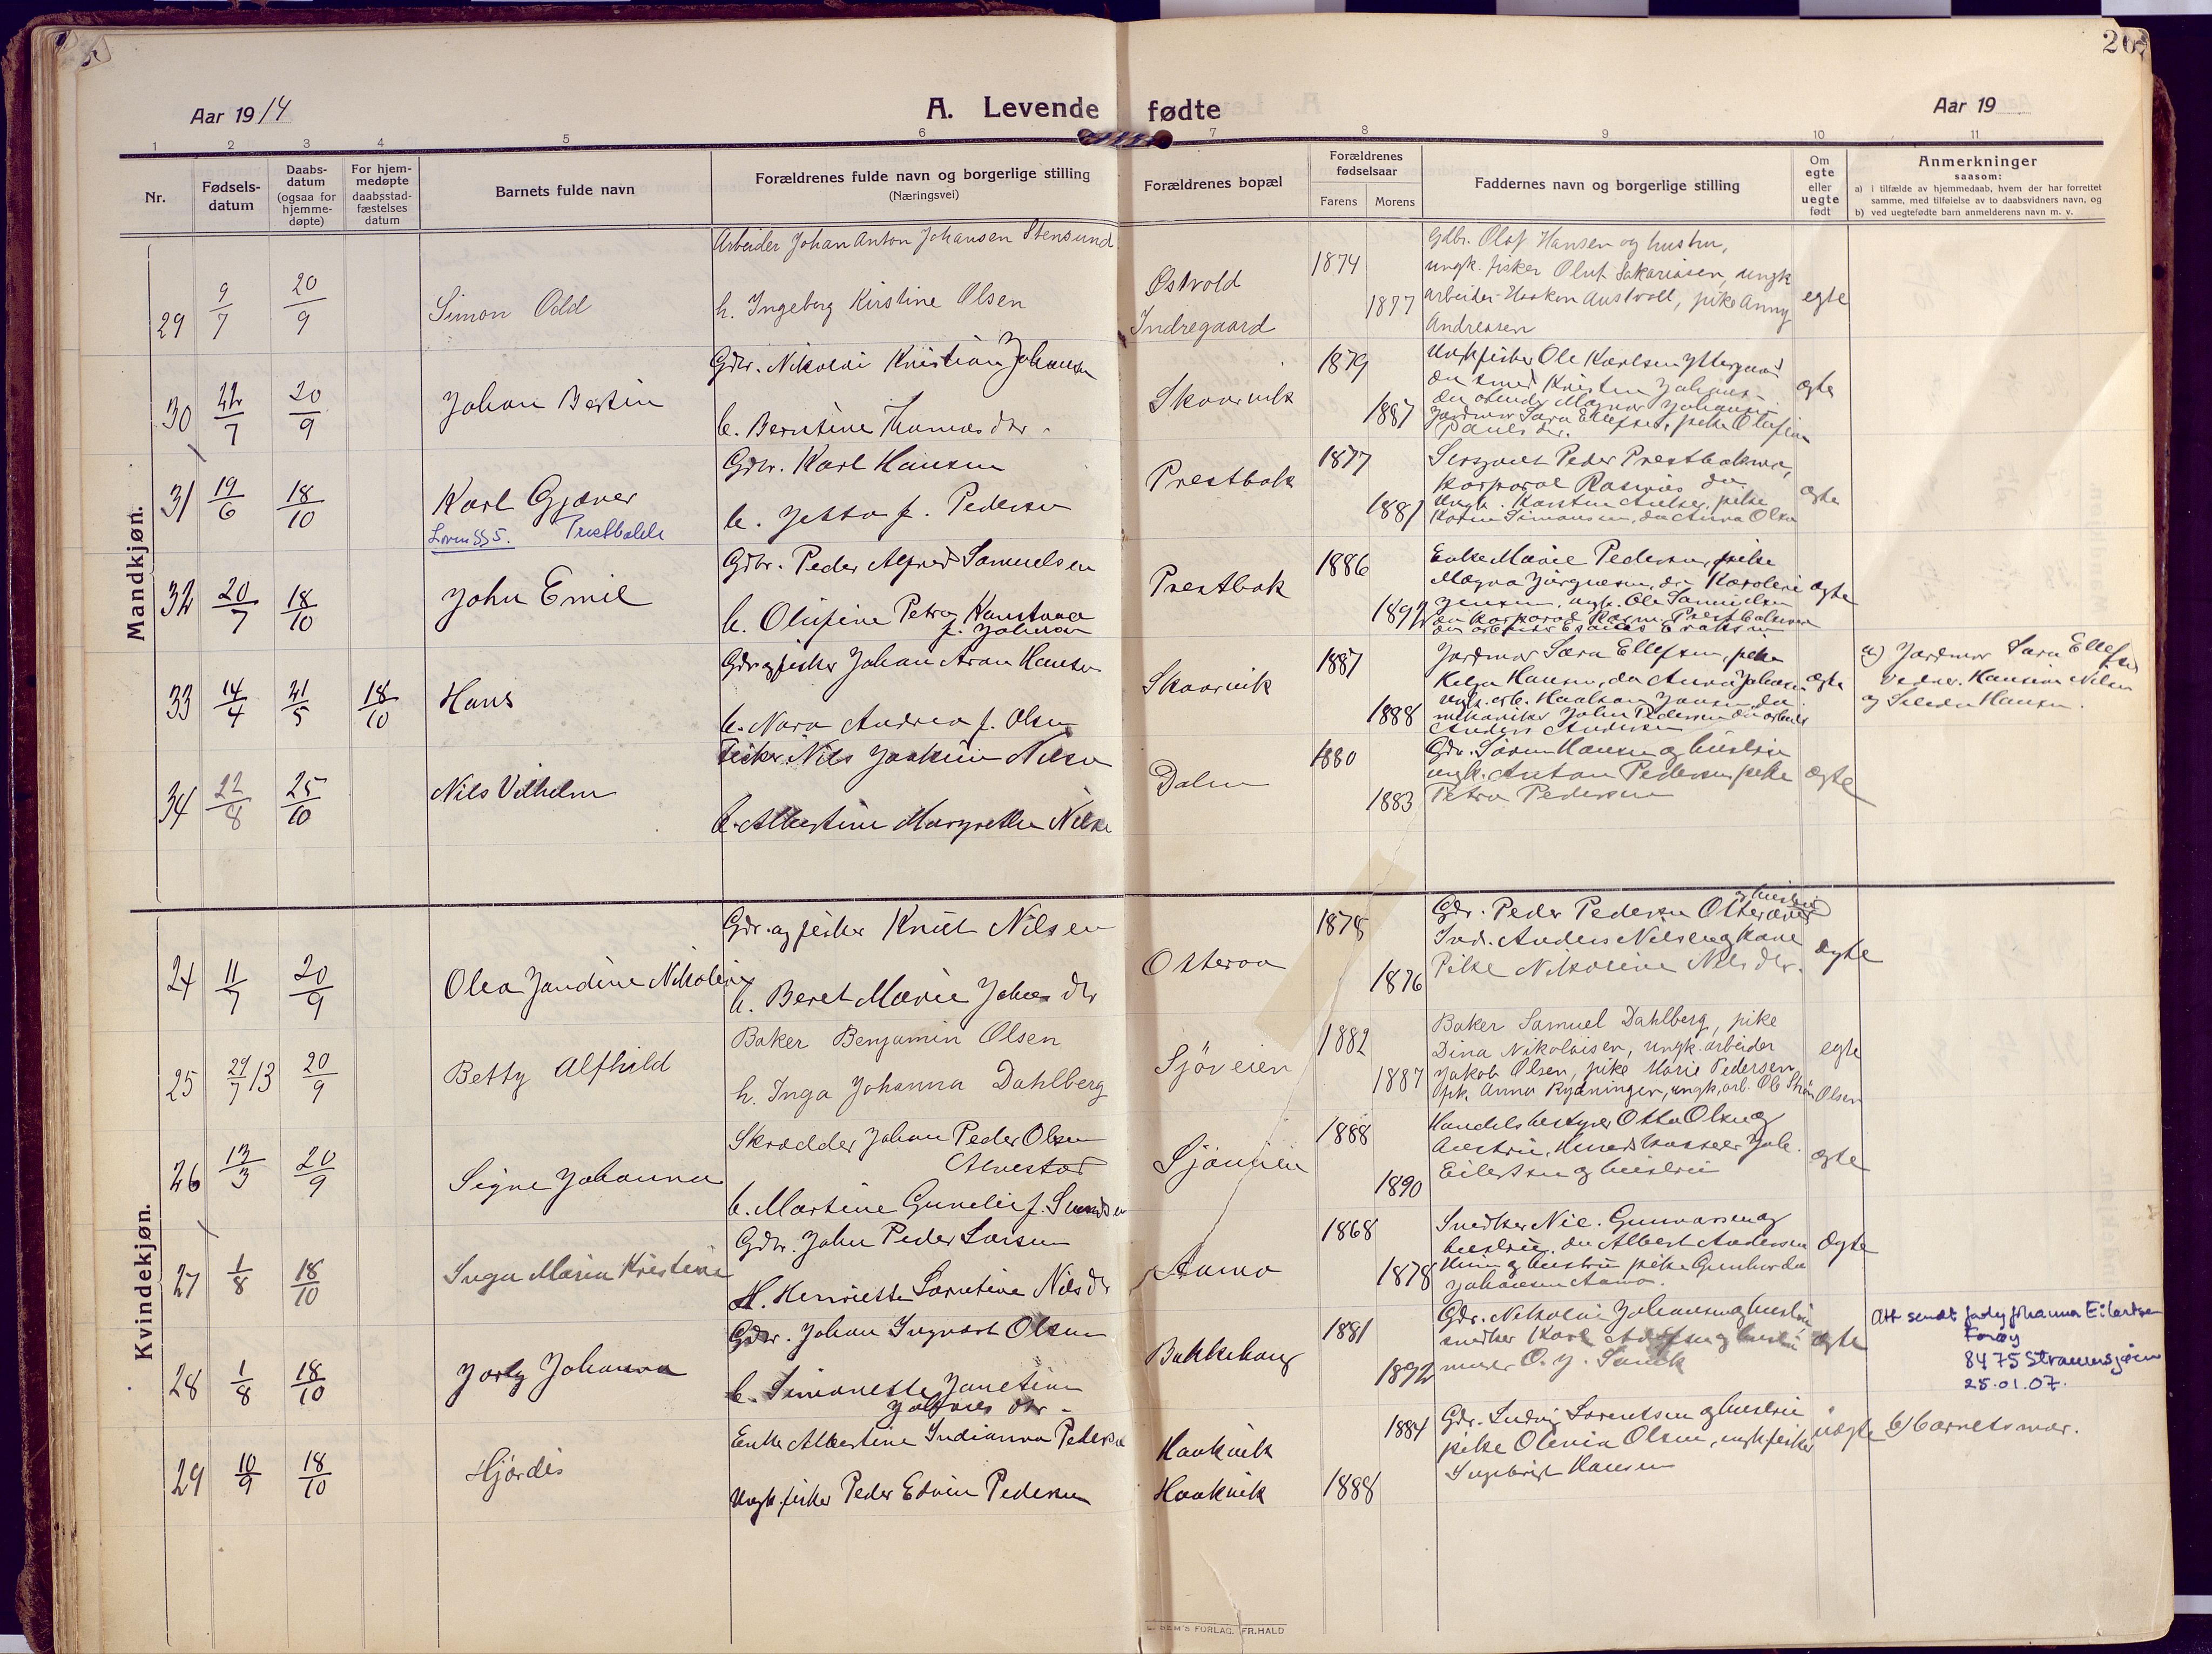 26
Aar 1914
A. Levende fødte
Aar 19
1 2 3 4 5 6 7 8 9 10 11
Nr.
Fødsels-
datum
Daabs-
datum
(ogsaa for
hjemme-
døpte)
For hjem-
medøpte
daabsstad-
fæstelses
datum
Barnets fulde navn
Forældrenes fulde navn og borgerlige stilling
(Næringsvei)
Forældrenes bopæl
Forældrenes
fødselsaar
Farens Morens
Faddernes navn og borgerlige stilling
Om
egte
eller
uegte
født
Anmerkninger
saasom:
a) i tilfælde av hjemmedaab, hvem der har forrettet
samme, med tilføielse av to daabsvidners navn, og
b) ved uegtefødte barn anmelderens navn m. v.
Mandkjøn.
29 9/7 20/9 Simon Odd
Arbeider Johan Anton Johansen Stensund
h. Ingeborg Kirstine Olsen
Østvold
Indregaard
1874
1877
Gdbr. Olaf Hansen og hustru,
ungk. fisker Oluf Sakariasen, ungk
arbeider Haakon Austvoll, pike Anny
Andreasen
egte
30 22/7 20/9 Johan Bertin
Gdbr. Nikolai Kristian Johansen
h. Berntine Thomasdtr.
Skaarvik
1879
1887
Ungk fisker Ole Karlsen Yttergaard
Jordmor Sara Ellefsen, pike Olufine
Paulsdtr.
egte
31 19/6 18/10 Karl Gjæver
Loven §5. Prestbakk
Gdbr. Karl Hansen
h. Jetta f. Pedersen
Prestbak
1877
1881
Sersjant Peder Prestbakmo,
korporal Rasmus do
Karen Simonsen, do Anna Olsen
egte
32 20/7 18/10 John Emil
Gdbr. Peder Alfred Samuelsen
h. Olufine Petra Konstance
f. Johnsen
Prestbak
1886
1892
Enke Marie Pedersen, pike
Magna Jørgensen, do Karoline
Jensen, ungk. Ole Samuelsen
egte
33 14/4 31/5 18/10 Hans
Gdbr og fisker Johan Aron Hansen
h. Nora Andrea f. Olsen
Skaarvik
1887
1888
Jordmor Sara Ellefsen, pike
Helga Hansen, do Anna Johansen
ungk. arb. Haakon Jansen, do
mekaniker John Pedersen do arbeider
Anders Andersen
egte
a) Jordmor Sara Ellefsen
Vidner. Hansine Nilsen
og Hansen.
34 22/8 25/10 Nils Vilhelm
Fisker Nils Joakim Nilsen
h. Albertine Margrethe Nilsen
Dalen
1880
1883
Gdbr. Søren Hansen og hustru
ungk. Anton Pedersen, pike
Petra Pedersen
egte
Kvindekjøn.
24 11/7 20/9 Olea Jandine Nikoline
Gdbr. og fisker Knut Nilsen
h. Beret Marie Johnsdtr
Otteraa
1878
1876
Gdbr. Peder Pedersen Otteraa
og hustru
Ind. Anders Nilsen og kone
Pike Nikoline Nilsdtr.
egte
25 29/7 13 20/9 Betty Alfhild
Baker Benjamin Olsen
h. Inga Johanna Dahlberg
Sjøveien
1882
1887
Baker Samuel Dahlberg, pike
Dina Nikolaisen, ungk. arbeider
Jakob Olsen, pike Marie Pedersen,
pk. Anna Rydningen, ungk. arb. Ole
Olsen
egte
26 13/3 20/9 Signe Johanna
Skrædder Johan Peder Olsen
Alvestad
h. Martine Gunelie f.
Sjøveien
1888
1890
Handelsbestyrer Otto Olsen og
hustru, Herredskasserer Joh.
Eilertsen og hustru
egte
27 1/8 18/10 Inga Marie Kristine
Gdbr. John Peder Larsen
h. Henriette Sørentine Nilsdtr
Aamo
1868
1878
Snedker Nic. Gunnarsen og
hustru. do Albert Andersen
og hustru pike Gunhorda
Johansen Aamo.
egte
28 1/8 18/10 Jorly Johanna
Gdbr. Johan Ingvart Olsen
h. Simonette Janetine
Johnsdtr.
Bakkehaug
1881
1892
Gdbr. Nikolai Johansen og hustru
snedker Karl og hustru
murer O. J.
egte
Att sendt Jorly Johanna Eilertsen
Forøy
8475 Straumsjøen
25.01.07.
29 10/9 18/10 Hjørdis
Enke Albertine Indianna Pedersen
Ungk. fisker Peder Edvin Pedersen
Haakvik
Haakvik
1884
1888
Gdbr. Ludvig Lorentsen og hustru
pike Olenia Olsen, ungk fisker
Ingebrigt Hansen
uegte
b) barnets mor.
SEM'S FORLAG. FR.HALD